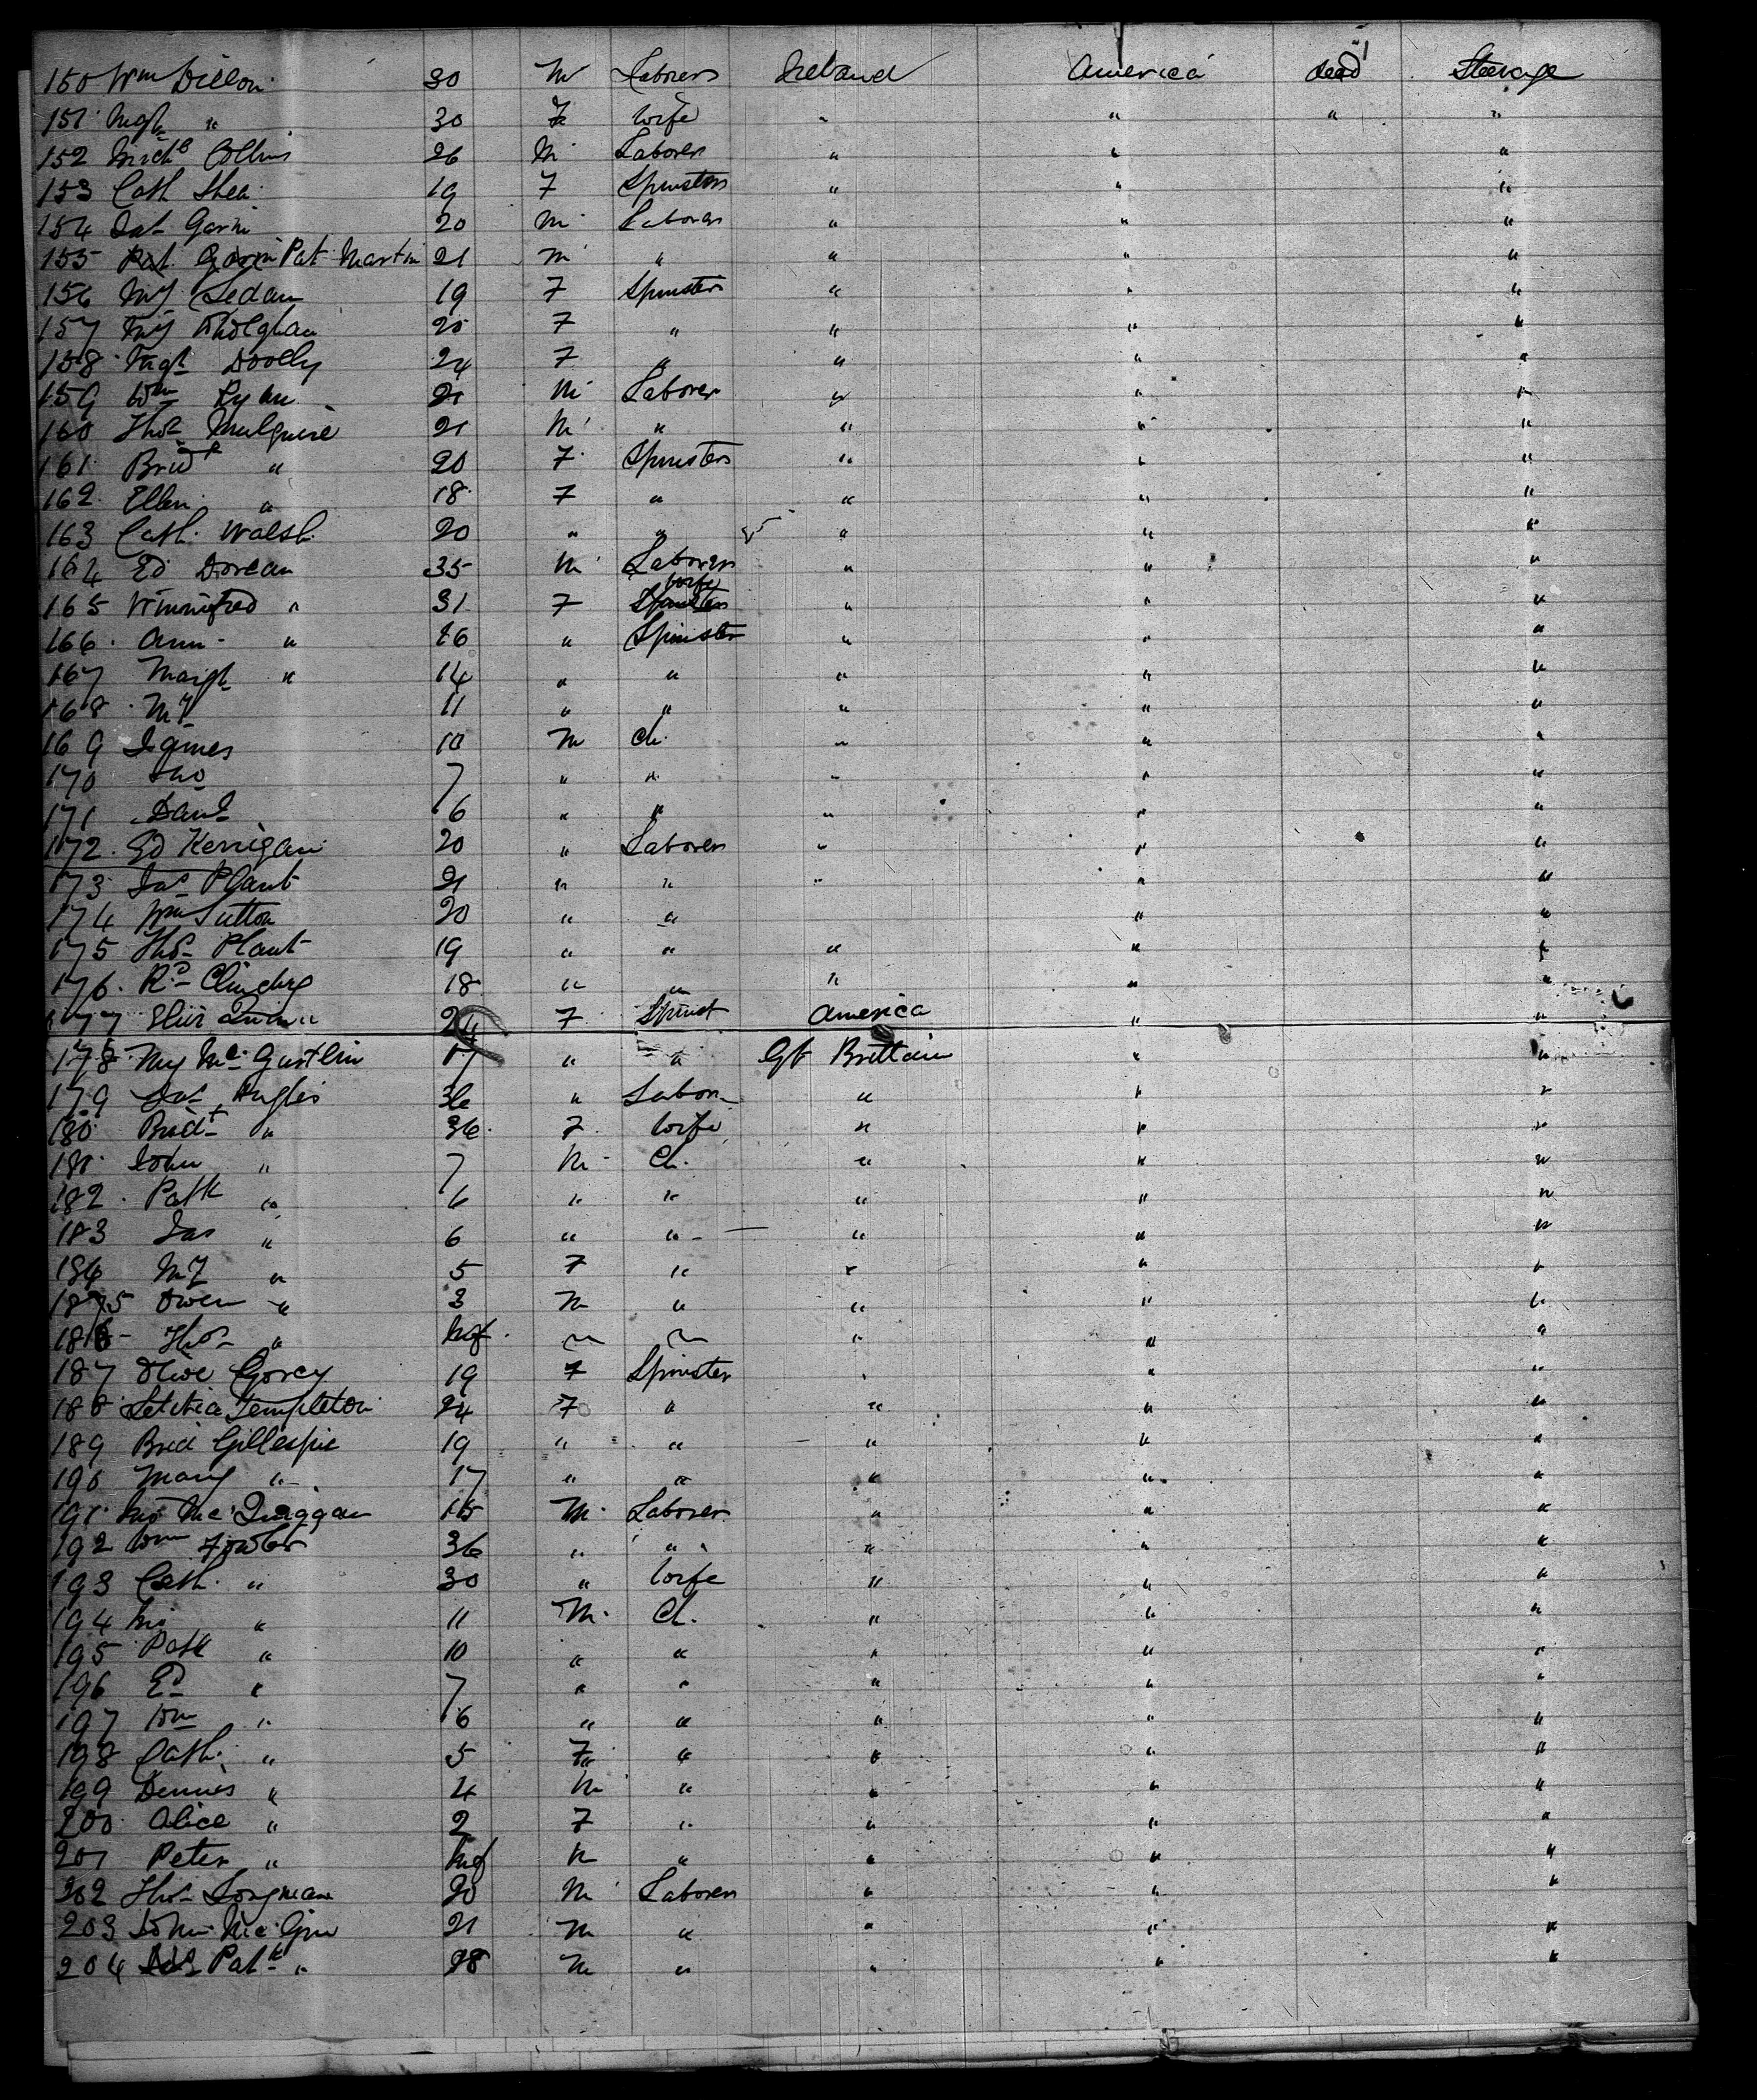 150 Wm Dillon 30 M Laborer Ireland America dead Steerage
151 Mgt " 30 F Wife " " " "
152 Michl Collins 26 M Laborer " " "
153 Cath Shea 19 F Spinster " " "
154 Pat Gavin 20 M Laborer " " "
155 Pat Gavin Pat Martin 21 M " " " "
156 My 19 F Spinster " " "
157 My 20 F " " " "
158 Mgt Doolly 24 F " " " "
159 Wm Ryan 21 M Laborer " " "
160 Thos Mulquire 21 M " " " "
161 Bridt " 20 F Spinster " " "
162 Ellen " 18 F " " " "
163 Cath Walsh 20 " " " " "
164 Ed Dorcan 35 M Laborer " " "
165 Winnifred " 31 F Spinster Wife " " "
166 Ann " 16 " Spinster " " "
167 Margt " 14 " " " " "
168 My 11 " " " " "
169 James 10 M Ch " " "
170 Jno 7 " " " " "
171 Danl 6 " " " " "
172 Ed Kerrigan 20 " Laborer " " "
173 Jas Plant 21 " " " " "
174 Wm Sutton 20 " " " "
175 Thos Plant 19 " " " " "
176 Rd 18 " " " " "
177 Quinn 24 F Spinst America " "
178 My Mc 17 " " Gt Brittain " "
179 Hughes 36 " Labor " " "
180 Bridt " 36 F Wife " " "
181 John " 7 M Ch " " "
182 Patk " 6 " " " " "
183 Jas " 6 " " " " "
184 My " 5 F " " " "
185 Owen " 3 M " " " "
186 Thos " Inf " " " " "
187 Olive Gorey 19 F Spinster " " "
188 Letitia Templeton 24 F " " " "
189 Brid Gillespie 19 " " " " "
190 Mary " 17 " " " " "
191 Jno Mc 15 M Laborer " " "
192 Wm Fowler 36 " " " " "
193 Cath " 30 " Wife " " "
194 Jno " 11 M Ch " " "
195 Patk " 10 " " " " "
196 Ed " 7 " " " " "
197 Wm " 6 " " " " "
198 Cath " 5 F " " " "
199 Dennis " 4 M " " " "
200 Alice " 2 F " " " "
201 Peter " Inf M " " " "
202 Thos Longman 20 M Laborer " " "
203 John Mc 21 M " " " "
204 Patk " 28 M " " " "